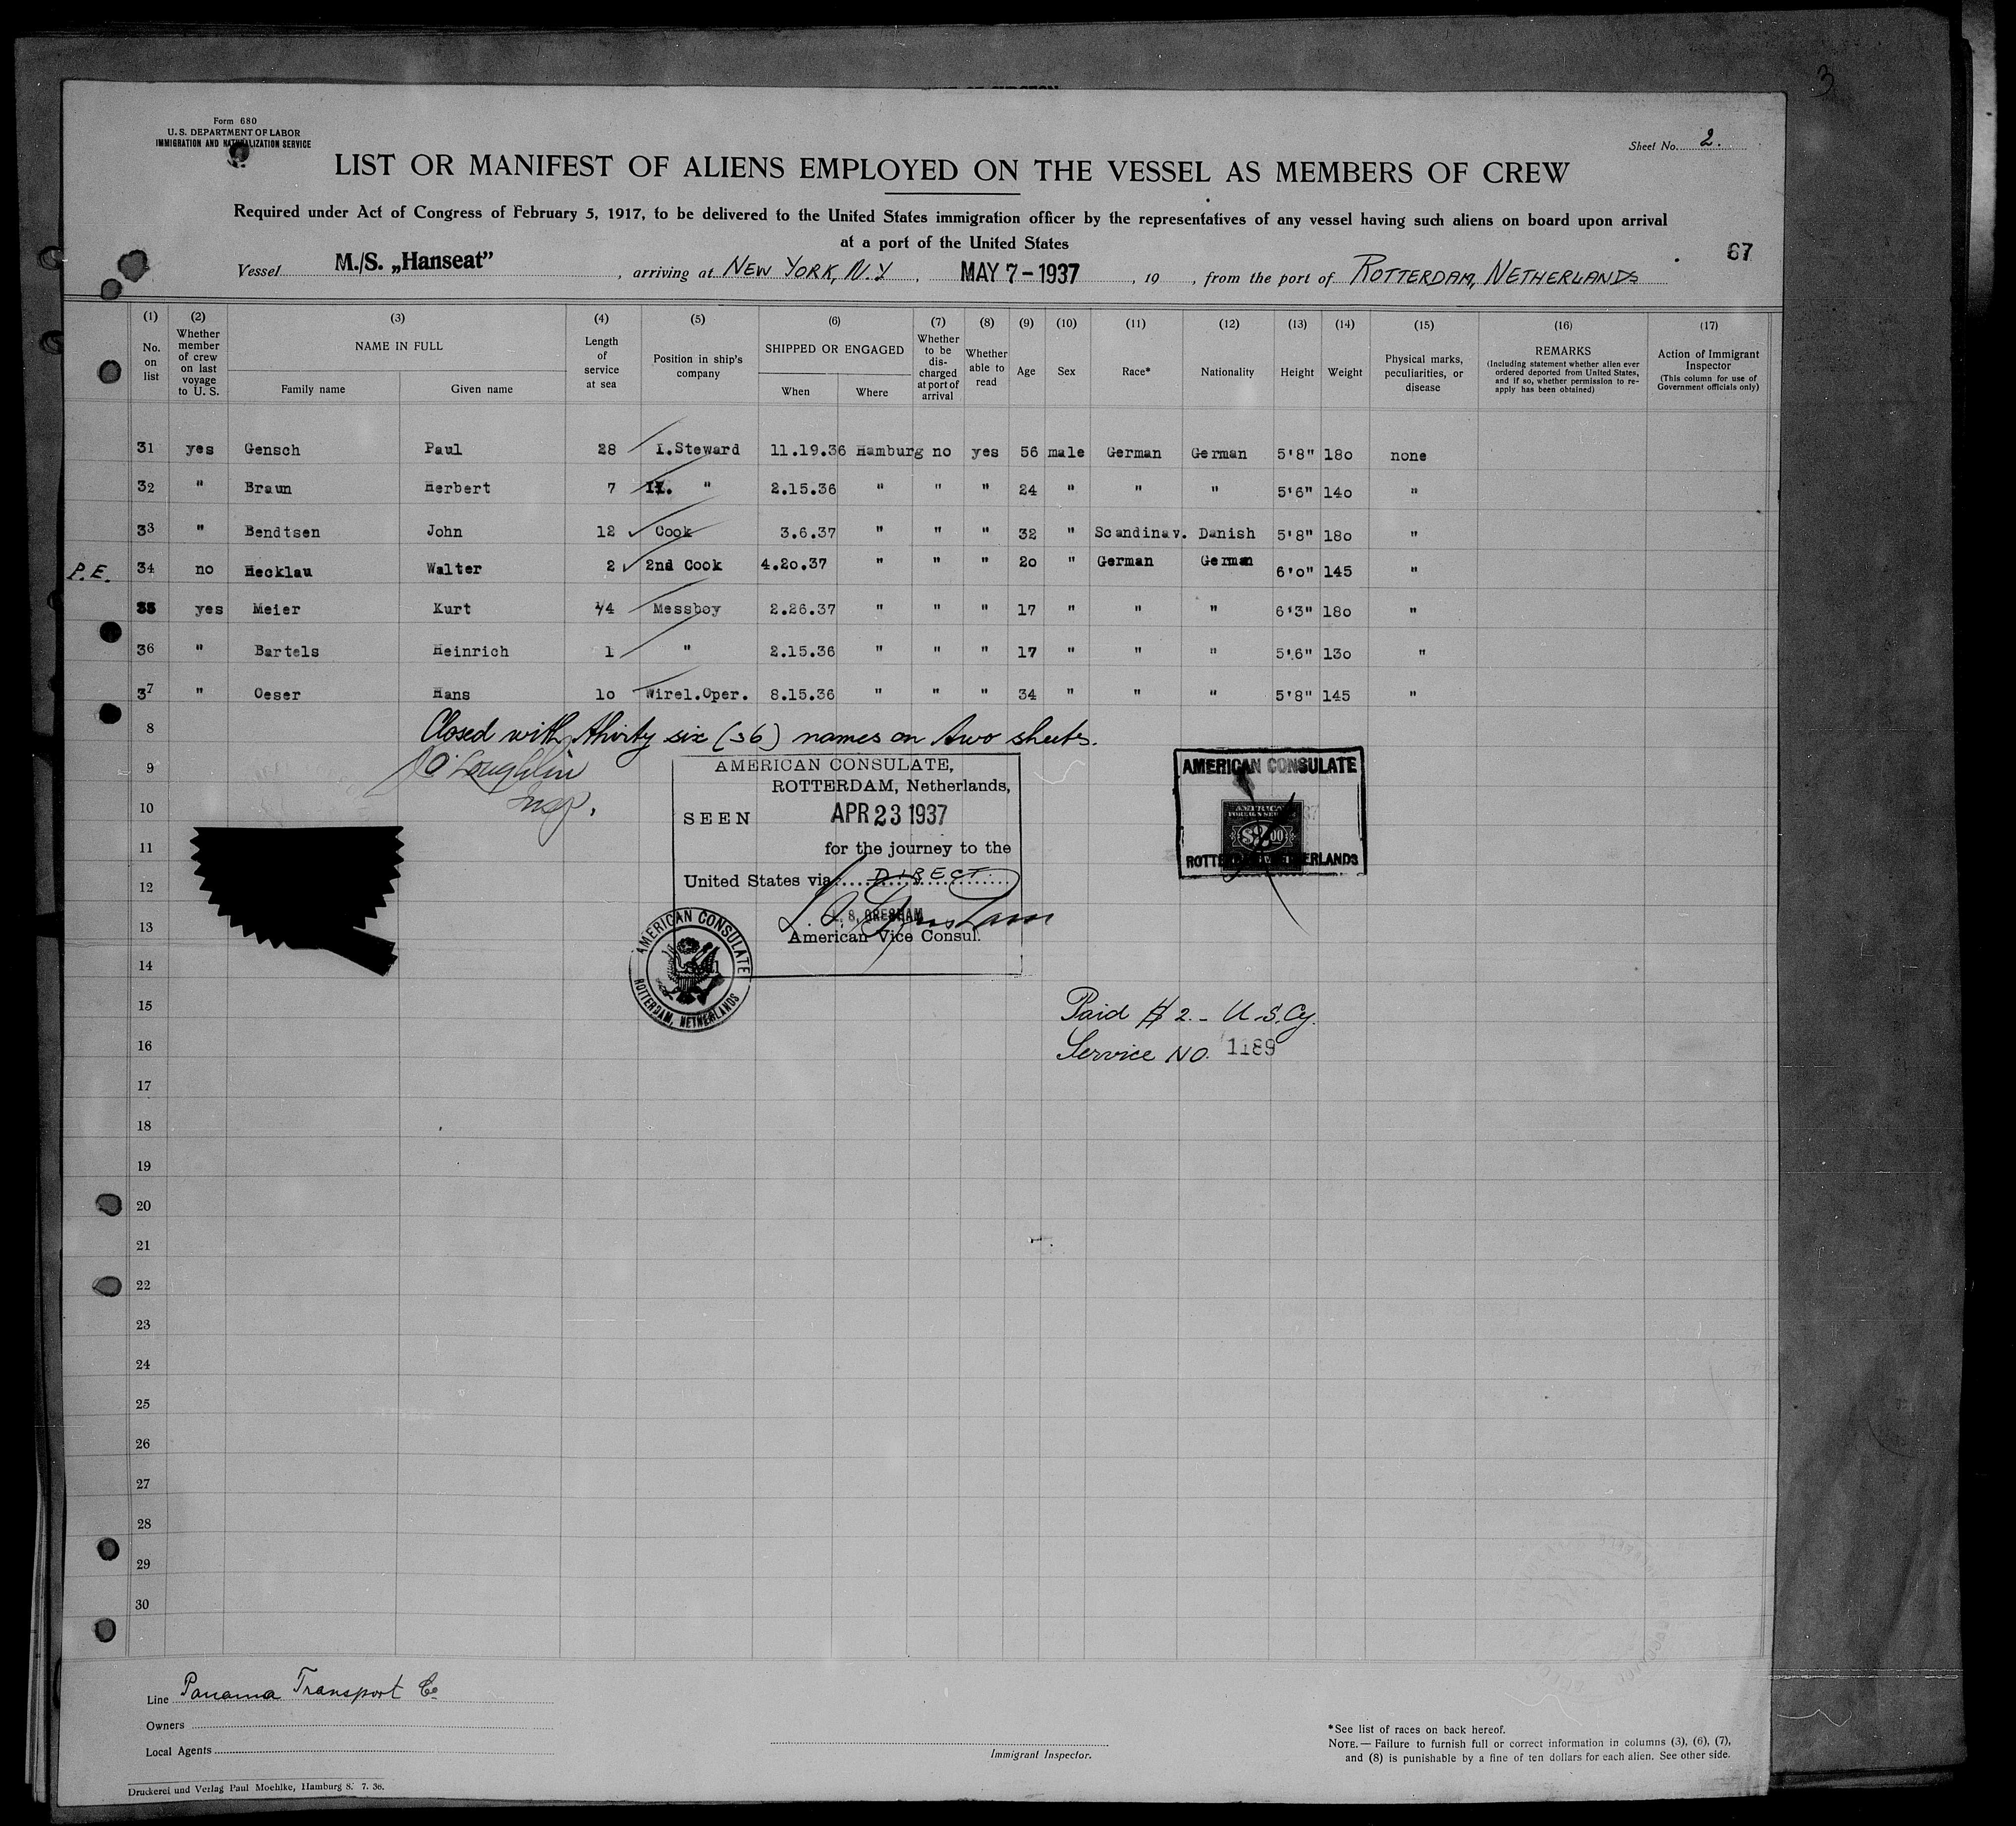 3
Form 680
U. S. DEPARTMENT OF LABOR
IMMIGRATION AND NATURALIZATION SERVICE
Sheet No. 2.
LIST OR MANIFEST OF ALIENS EMPLOYED ON THE VESSEL AS MEMBERS OF CREW
Required under Act of Congress of February 5, 1917, to be delivered to the United States immigration officer by the representatives of any vessel having such aliens on board upon arrival
at a port of the United States
67
Vessel M./S. „Hanseat” , arriving at NEW YORK, N.Y , MAY 7 - 1937 , 19 , from the port of ROTTERDAM, NETHERLANDS
(1) (2) (3) (4) (5) (6) (7) (8) (9) (10) (11) (12) (13) (14) (15) (16) (17)
No. on list
Whether member of crew on last voyage to U. S.
NAME IN FULL
Family name Given name
Length of service at sea
Position in ship's company
SHIPPED OR ENGAGED
When Where
Whether to be discharged at port of arrival
Whether able to read
Age
Sex
Race*
Nationality
Height
Weight
Physical marks, peculiarities, or disease
REMARKS
(Including statement whether alien ever ordered deported from United States, and if so, whether permission to re-apply has been obtained)
Action of Immigrant Inspector
(This column for use of Government officials only)
31 yes Gensch Paul 28 I.Steward 11.19.36 Hamburg no yes 56 male German German 5'8" 180 none
32 " Braun Herbert 7 II. " 2.15.36 " " " 24 " " " 5'6" 140 "
33 " Bendtsen John 12 Cook 3.6.37 " " " 32 " Scandinav. Danish 5'8" 180 "
P.E. 34 no Hecklau Walter 2 2nd Cook 4.20.37 " " " 20 " German German 6'0" 145 "
35 yes Meier Kurt 1/4 Messboy 2.26.37 " " " 17 " " " 6'3" 180 "
36 " Bartels Heinrich 1 " 2.15.36 " " " 17 " " " 5'6" 130 "
37 " Oeser Hans 10 Wirel.Oper. 8.15.36 " " " 34 " " " 5'8" 145 "
8 Closed with thirty six (36) names on two sheets.
9 O'Loughlin
10 Insp.
11
12
13
14
15
16
17
18
19
20
21
22
23
24
25
26
27
28
29
30
AMERICAN CONSULATE,
ROTTERDAM, Netherlands,
SEEN APR 23 1937
for the journey to the
United States via DIRECT
S. GRESHAM
American Vice Consul.
AMERICAN CONSULATE
ROTTERDAM, NETHERLANDS
AMERICAN CONSULATE
AMERICAN
FOREIGN SERVICE
$2.00
ROTTERDAM, NETHERLANDS
Paid $ 2.- U.S.Cy.
Service NO. 1189
Line Panama Transport Co
Owners
Local Agents
Immigrant Inspector.
*See list of races on back hereof.
NOTE.— Failure to furnish full or correct information in columns (3), (6), (7),
and (8) is punishable by a fine of ten dollars for each alien. See other side.
Druckerei und Verlag Paul Moehlke, Hamburg 8. 7. 36.